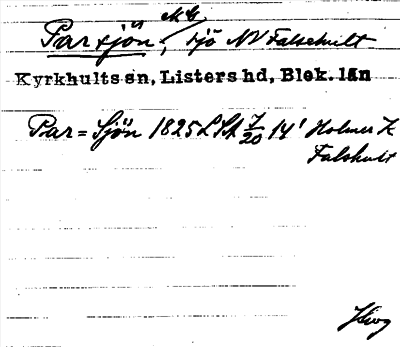 Parsjön, sjö NV Falsehult
Kyrkhults sn, Listers hd, Blek. län
Par=Sjön 1825 LSA 7/20 14' Holmer K
Falshult